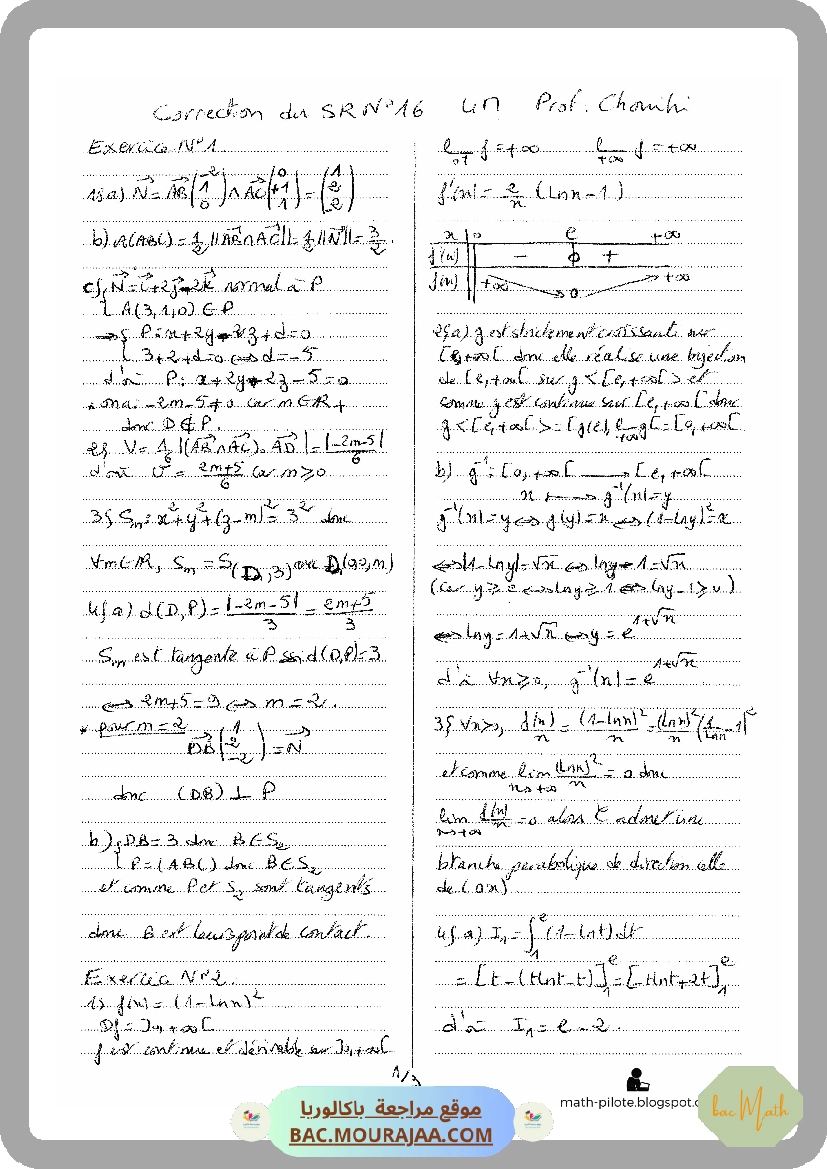 Correction du SR N°16 4M Prof. Chouihi
Exercice N°1
1) a) N = AB (-2 1 0) ∧ AC (0 +1 1) = (1 2 2)
b) A(ABC) = 1/2 ||AB∧AC|| = 1/2 ||N|| = 3/2.
c) { N = i+2j-2k normal à P
A(3,1,0) ∈ P
→ { P: x+2y-2z+d=0
3+2+d=0 ⇔ d=-5
d'où P: x+2y-2z-5=0
* on a: -2m-5≠0 car m∈ℝ+
donc D∉P.
2) V = 1/6 |(AB∧AC).AD| = |-2m-5|/6
d'où V = (2m+5)/6 car m≥0
3) Sm: x²+y²+(z-m)² = 3² donc
∀m∈ℝ, Sm = S(D,3) avec D(0,0,m)
4) a) d(D,P) = |-2m-5|/3 = (2m+5)/3
Sm est tangente à P ssi d(D,P)=3
⇔ 2m+5=9 ⇔ m=2.
* pour m=2
DB (1 2 -2) = N
donc (DB) ⊥ P
b) { DB=3 donc B∈S₂
P=(ABC) donc B∈S₂
et comme P et S₂ sont tangents
donc B est leurs point de contact.
Exercice N°2
1) f(x) = (1-lnx)²
Df = ]0,+∞[
f est continue et dérivable sur ]0,+∞[
l 0+ f = +∞ l +∞ f = +∞
f'(x) = 2/x (lnx-1)
x 0 e +∞
f'(x) - 0 +
f(x) +∞ 0 +∞
2) a) g est strictement croissante sur
[e,+∞[ donc elle réalise une bijection
de [e,+∞[ sur g<[e,+∞[> et
comme g est continue sur [e,+∞[ donc
g<[e,+∞[> = [g(e), l +∞ g[ = [0,+∞[
b) g⁻¹: [0,+∞[ → [e,+∞[
x ↦ g⁻¹(x)=y
g⁻¹(x)=y ⇔ g(y)=x ⇔ (1-lny)²=x
⇔ |1-lny|=√x ⇔ lny-1=√x
(car y≥e ⇔ lny≥1 ⇔ lny-1≥0)
⇔ lny=1+√x ⇔ y=e^(1+√x)
d'où ∀x≥0, g⁻¹(x)=e^(1+√x)
3) ∀x>0, f(x)/x = (1-lnx)²/x = (lnx)²/x (1/lnx - 1)²
et comme lim x→+∞ (lnx)²/x = 0 donc
lim x→+∞ f(x)/x = 0 alors C admet une
branche parabolique de direction celle
de (Ox)
4) a) I₁ = ∫₁^e (1-lnt)dt
= [t-(tlnt-t)]₁^e = [-tlnt+2t]₁^e
d'où I₁ = e-2.
1/3
math-pilote.blogspot.c
bac Math
موقع مراجعة باكالوريا
BAC.MOURAJAA.COM